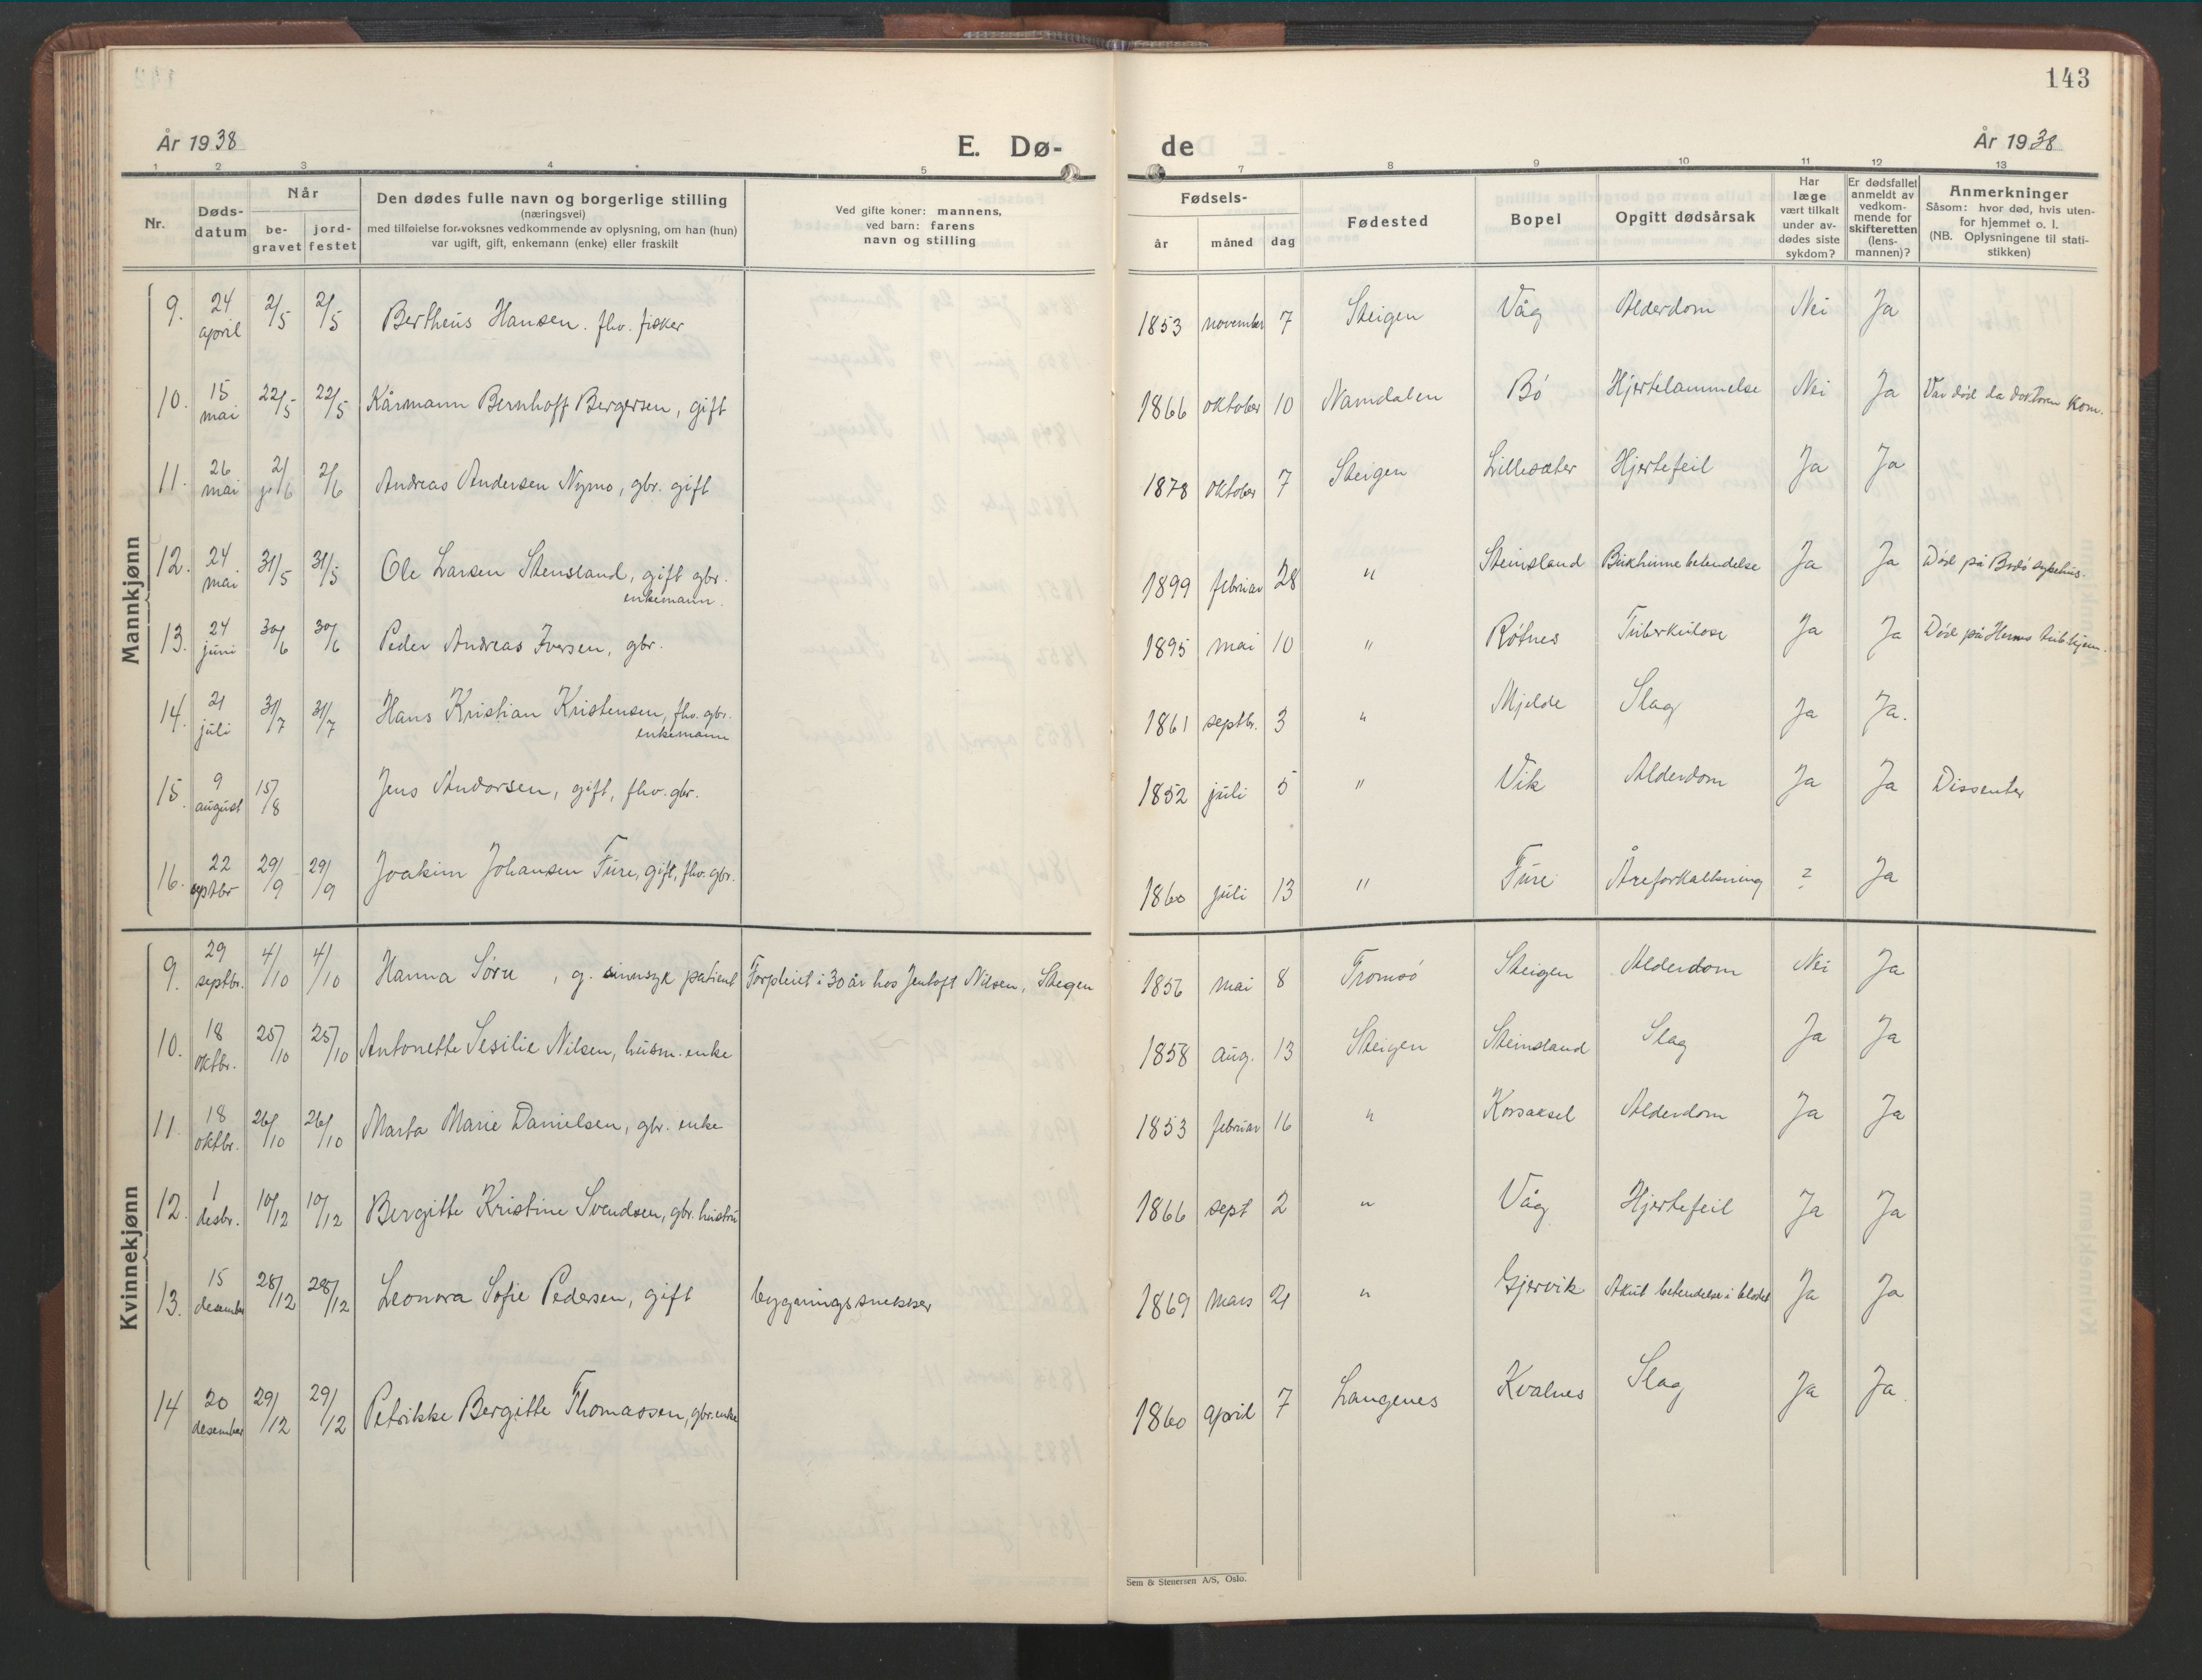 143
År 1938
E. Dø-
de
År 1938
1 2 3 4 5 7 8 9 10 11 12 13
Nr.
Døds-
datum
Når
be-
gravet
jord-
festet
Den dødes fulle navn og borgerlige stilling
(næringsvei)
med tilføielse for voksnes vedkommende av oplysning, om han (hun)
var ugift, gift, enkemann (enke) eller fraskilt
Ved gifte koner: mannens,
ved barn: farens
navn og stilling
Fødsels-
år måned dag
Fødested
Bopel
Opgitt dødsårsak
Har
læge
vært tilkalt
under av-
dødes siste
sykdom?
Er dødsfallet
anmeldt av
vedkom-
mende for
skifteretten
(lens-
mannen)?
Anmerkninger
Såsom: hvor død, hvis uten-
for hjemmet o. l.
(NB. Oplysningene til stati-
stikken)
Mannkjønn
9. 24 april 2/5 2/5 Bertheus Hansen. fhv. fisker 1853 november 7 Steigen Våg Alderdom Nei Ja
10. 15 mai 22/5 22/5 Kårmann Bernhoff Bergersen, gift 1866 oktober 10 Namdalen Bø Hjertelammelse Nei Ja Var død da doktoren kom.
11. 26 mai 2/6 2/6 Andreas Andersen Nymo, gbr. gift 1878 oktober 7 Steigen Lillesæter Hjertefeil Ja Ja
12. 24 mai 31/5 31/5 Ole Larsen Stensland, gift gbr. 1899 februar 28 " Steinsland Bukhinnebetendelse Ja Ja Død på Bodø sykehus.
enkemann.
13. 24 juni 30/6 30/6 Peder Andreas Iversen, gbr. 1895 mai 10 " Røtnes Tuberkulose Ja Ja Død på tub.hjem.
14. 21 juli 31/7 31/7 Hans Kristian Kristensen, fhv. gbr. 1861 septbr. 3 " Mjelde Slag Ja Ja.
enkemann
15. 9 august 15/8 Jens Andorsen, gift, fhv. gbr. 1852 juli 5 " Vik Alderdom Ja Ja Dissenter
16. 22 septbr 29/9 29/9 Joakim Johansen Fure, gift, fhv. gbr. 1860 juli 13 " Fure Åreforkalkning ? Ja
Kvinnekjønn
9. 29 septbr. 4/10 4/10 Hanna Søre , g. sinnsyk patient Forpleiet i 30 år hos Jentoft Nilsen, Steigen 1856 mai 8 Tromsø Steigen Alderdom Nei Ja
10. 18 oktbr. 25/10 25/10 Antonette Sesilie Nilsen, husm. enke 1858 aug. 13 Steigen Steinsland Slag Ja Ja
11. 18 oktbr. 26/10 26/10 Marta Marie Danielsen, gbr. enke 1853 februar 16 " Korsaksel Alderdom Ja Ja
12. 1 desbr. 10/12 10/12 Bergitte Kristine Svendsen, gbr. hustru 1866 sept 2 " Våg Hjertefeil Ja Ja
13. 15 desember 28/12 28/12 Leonora Sofie Pedersen, gift bygningssnekker 1869 mars 21 " Gjervik Akut betendelse i blodet Ja Ja
14 20 desember 29/12 29/12 Petrikke Bergitte Thomassen, gbr. enke 1860 april 7 Langenes Kvalnes Slag Ja Ja.
Sem & Stenersen A/S, Oslo.